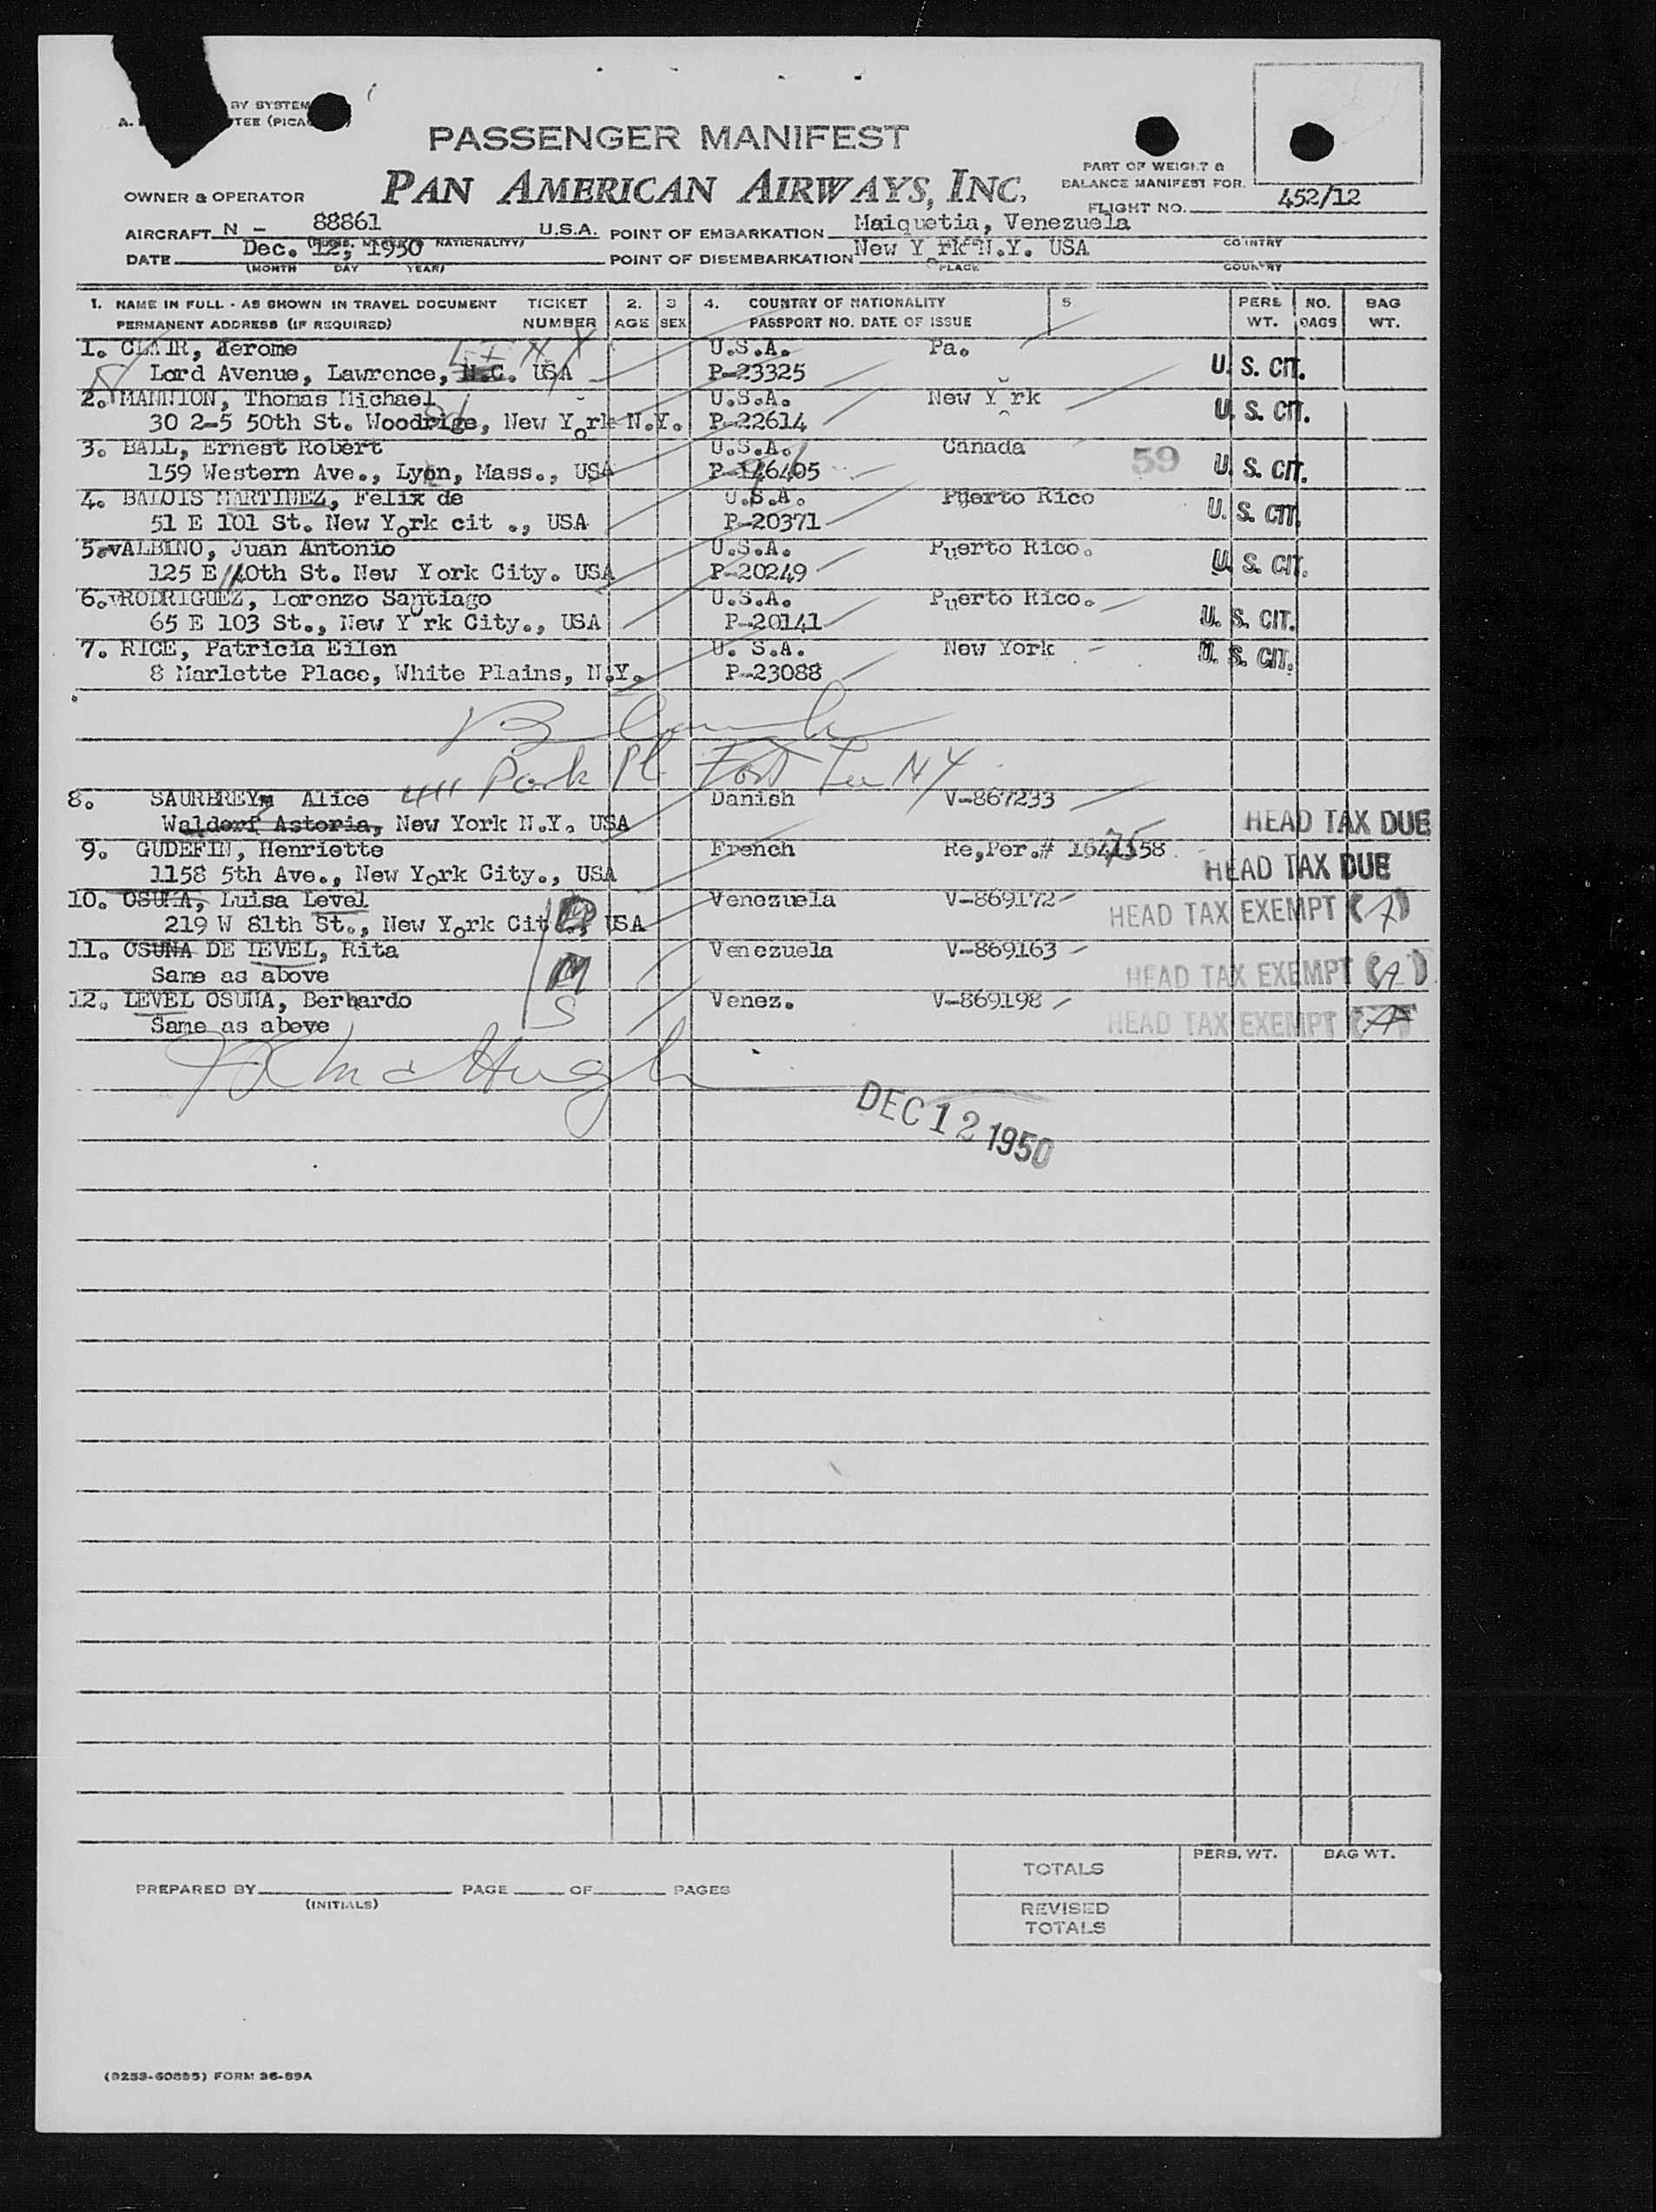 BY SYSTEM
A. TEE (PICA
PASSENGER MANIFEST
PAN AMERICAN AIRWAYS, INC.
PART OF WEIGHT &
BALANCE MANIFEST FOR.
OWNER & OPERATOR
FLIGHT NO. 452/12
AIRCRAFT N - 88861 U.S.A. POINT OF EMBARKATION Maiquetia, Venezuela
NATIONALITY) COUNTRY
DATE Dec. 12, 1950 POINT OF DISEMBARKATION New Y rk N.Y. USA
(MONTH DAY YEAR) PLACE COUNTRY
1. NAME IN FULL - AS SHOWN IN TRAVEL DOCUMENT TICKET 2. 3 4. COUNTRY OF NATIONALITY 5. PERS. NO. BAG
PERMANENT ADDRESS (IF REQUIRED) NUMBER AGE SEX PASSPORT NO. DATE OF ISSUE WT. BAGS WT.
1. CLAIR, Jerome U.S.A. Pa.
Lord Avenue, Lawrence, N.C. USA P-23325 U. S. CIT.
2. MANNION, Thomas Michael U.S.A. New Y rk
30 2-5 50th St. Woodrige, New York N.Y. P-22614 U. S. CIT.
3. BALL, Ernest Robert U.S.A. Canada
159 Western Ave., Lyon, Mass., USA P-146405 59 U. S. CIT.
4. BALOIS MARTINEZ, Felix de U.S.A. Puerto Rico
51 E 101 St. New York cit ., USA P-20371 U. S. CIT.
5. ALBINO, Juan Antonio U.S.A. Puerto Rico.
125 E 140th St. New York City. USA P-20249 U. S. CIT.
6. RODRIGUEZ, Lorenzo Santiago U.S.A. Puerto Rico.
65 E 103 St., New York City., USA P-20141 U. S. CIT.
7. RICE, Patricia Eilen U. S.A. New York
8 Marlette Place, White Plains, N.Y. P-23088 U. S. CIT.
411 Park Pl Fort Lee NY
8. SAURBREY, Alice Danish V-867233
Waldorf Astoria, New York N.Y. USA HEAD TAX DUE
9. GUDEFIN, Henriette French Re,Per.#
1158 5th Ave., New York City., USA HEAD TAX DUE
10. OSUNA, Luisa Level Venezuela V-869172
219 W 81th St., New York Cit USA HEAD TAX EXEMPT (A)
11. OSUNA DE LEVEL, Rita Venezuela V-869163
Same as above M HEAD TAX EXEMPT (A)
12. LEVEL OSUNA, Bernardo Venez. V-869198
Same as above S HEAD TAX EXEMPT (A)
DEC 12 1950
TOTALS PERS. WT. BAG WT.
PREPARED BY PAGE OF PAGES
(INITIALS)
REVISED
TOTALS
FORM 36-89A